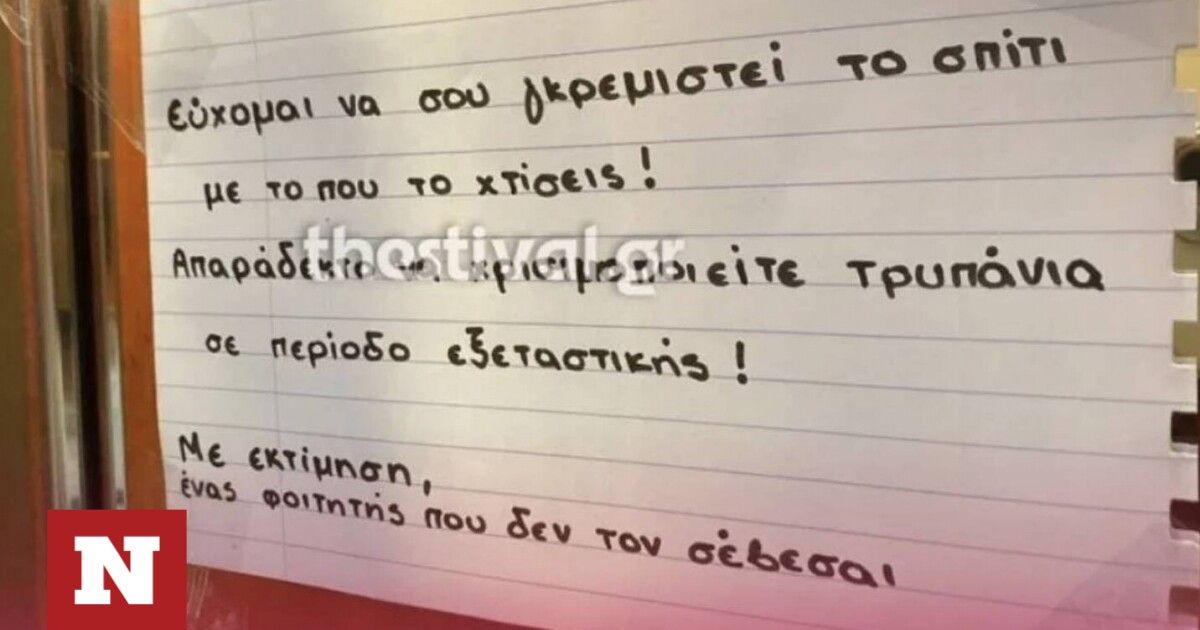 Εύχομαι να σου γκρεμιστεί το σπίτι
με το που το χτίσεις!
Απαράδεκτο να χρισιμοποιείτε τρυπάνια
thestival.gr
σε περίοδο εξεταστικής!
Με εκτίμηση,
ένας φοιτητής που δεν τον σέβεσαι
N